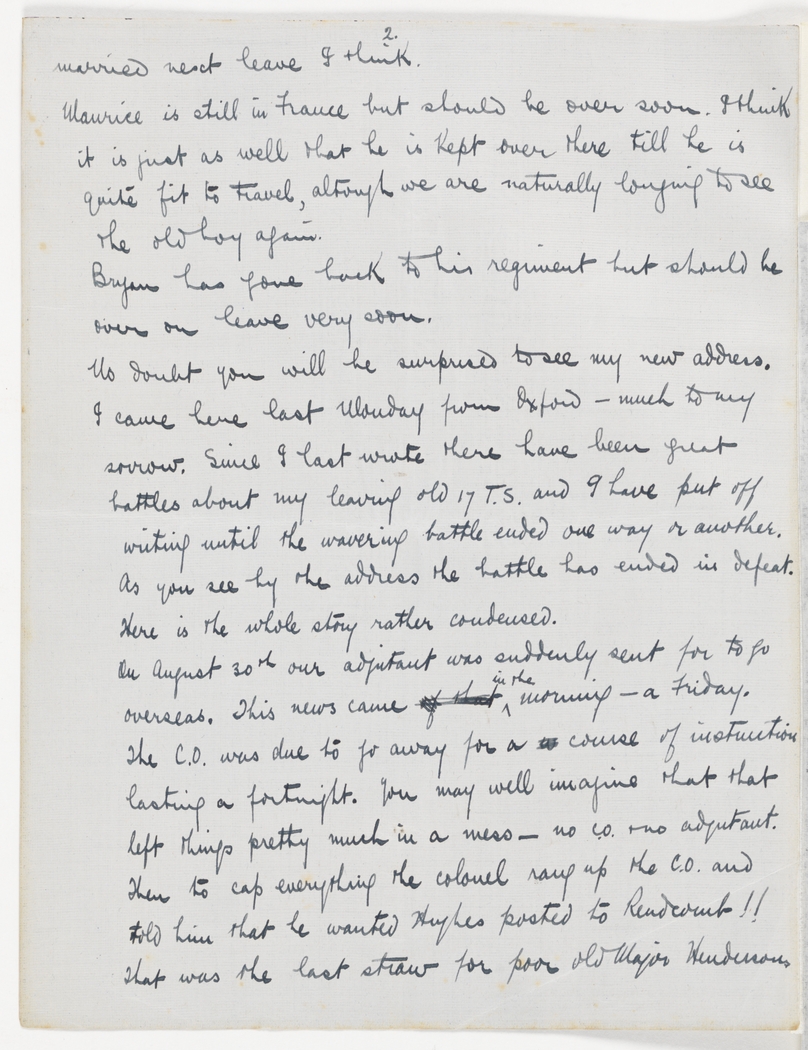 2.
married next leave I think.
Maurice is still in France but should be over soon. I think
it is just as well that he is kept over there till he is
quite fit to travel, altough we are naturally longing to see
the old boy again.
Bryan has gone back to his regiment but should be
over on leave very soon.
No doubt you will be surprised to see my new address.
I came here last Monday from Oxford – much to my
sorrow. Since I last wrote there have been great
battles about my leaving old 17 T.S. and I have put off
writing until the wavering battle ended one way or another.
As you see by the address the battle has ended in defeat.
Here is the whole story rather condensed.
On August 30th our adjutant was suddenly sent for to go
overseas. This news came in the morning – a Friday.
The C.O. was due to go away for a course of instruction
lasting a fortnight. You may well imagine that that
left things pretty much in a mess – no C.O. + no adjutant.
Then to cap everything the colonel rang up the C.O. and
told him that he wanted Hughes posted to Rendcomb!!
That was the last straw for poor old Major Hendersons